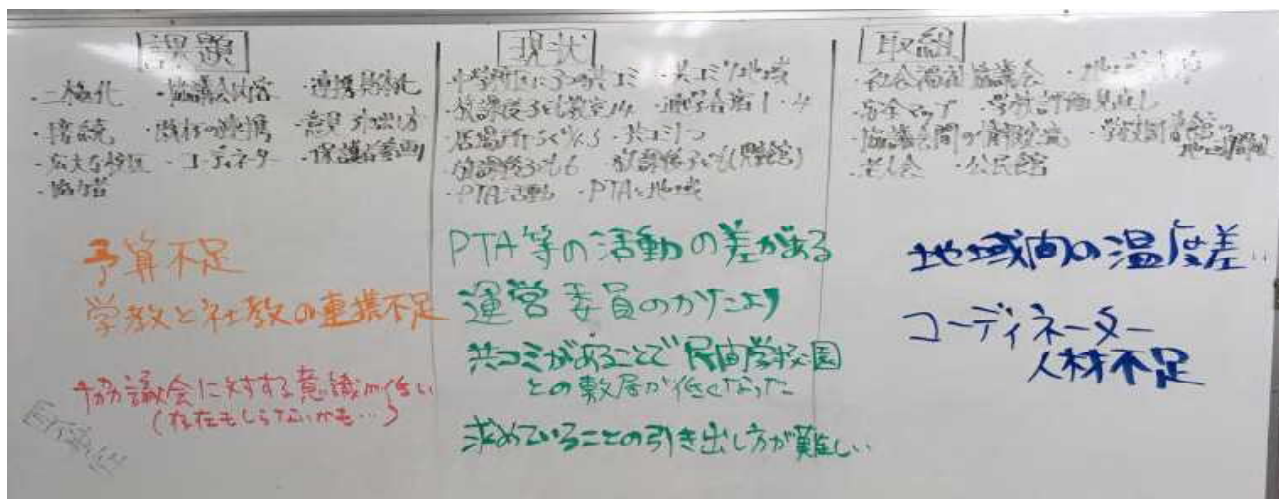 課題
・二極化 ・協議会内容 ・連携具体化
・接続 ・既存の連携 ・意見の引き出し方
・広大な校区 ・コーディネーター ・保護者
予算不足
学教と社教の連携不足
協議会に対する意識が低い
(存在もしらないかも…)
現状
・共コミ
・放課後子ども教室14 ・通学合宿1・4
・居場所づくり ・共コミ
・放課後子ども ・放課後子ども
・PTA活動 ・PTAと地域
PTA等の活動の差がある
運営委員のかたより
共コミがあることで民間学校園
との敷居が低くなった
求めていることの引き出し方が難しい
取組
・社会福祉協議会
・安全マップ ・学校評価見直し
・協議会間の情報交流
・老人会 ・公民館
地域間の温度差
コーディネーター
人材不足